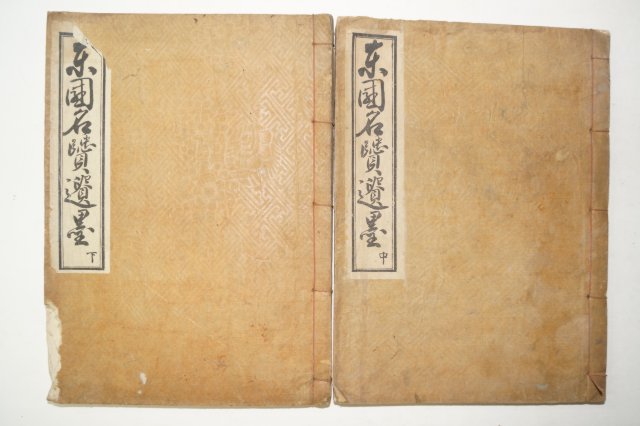 東國名贒遺墨
中
東國名贒遺墨
下